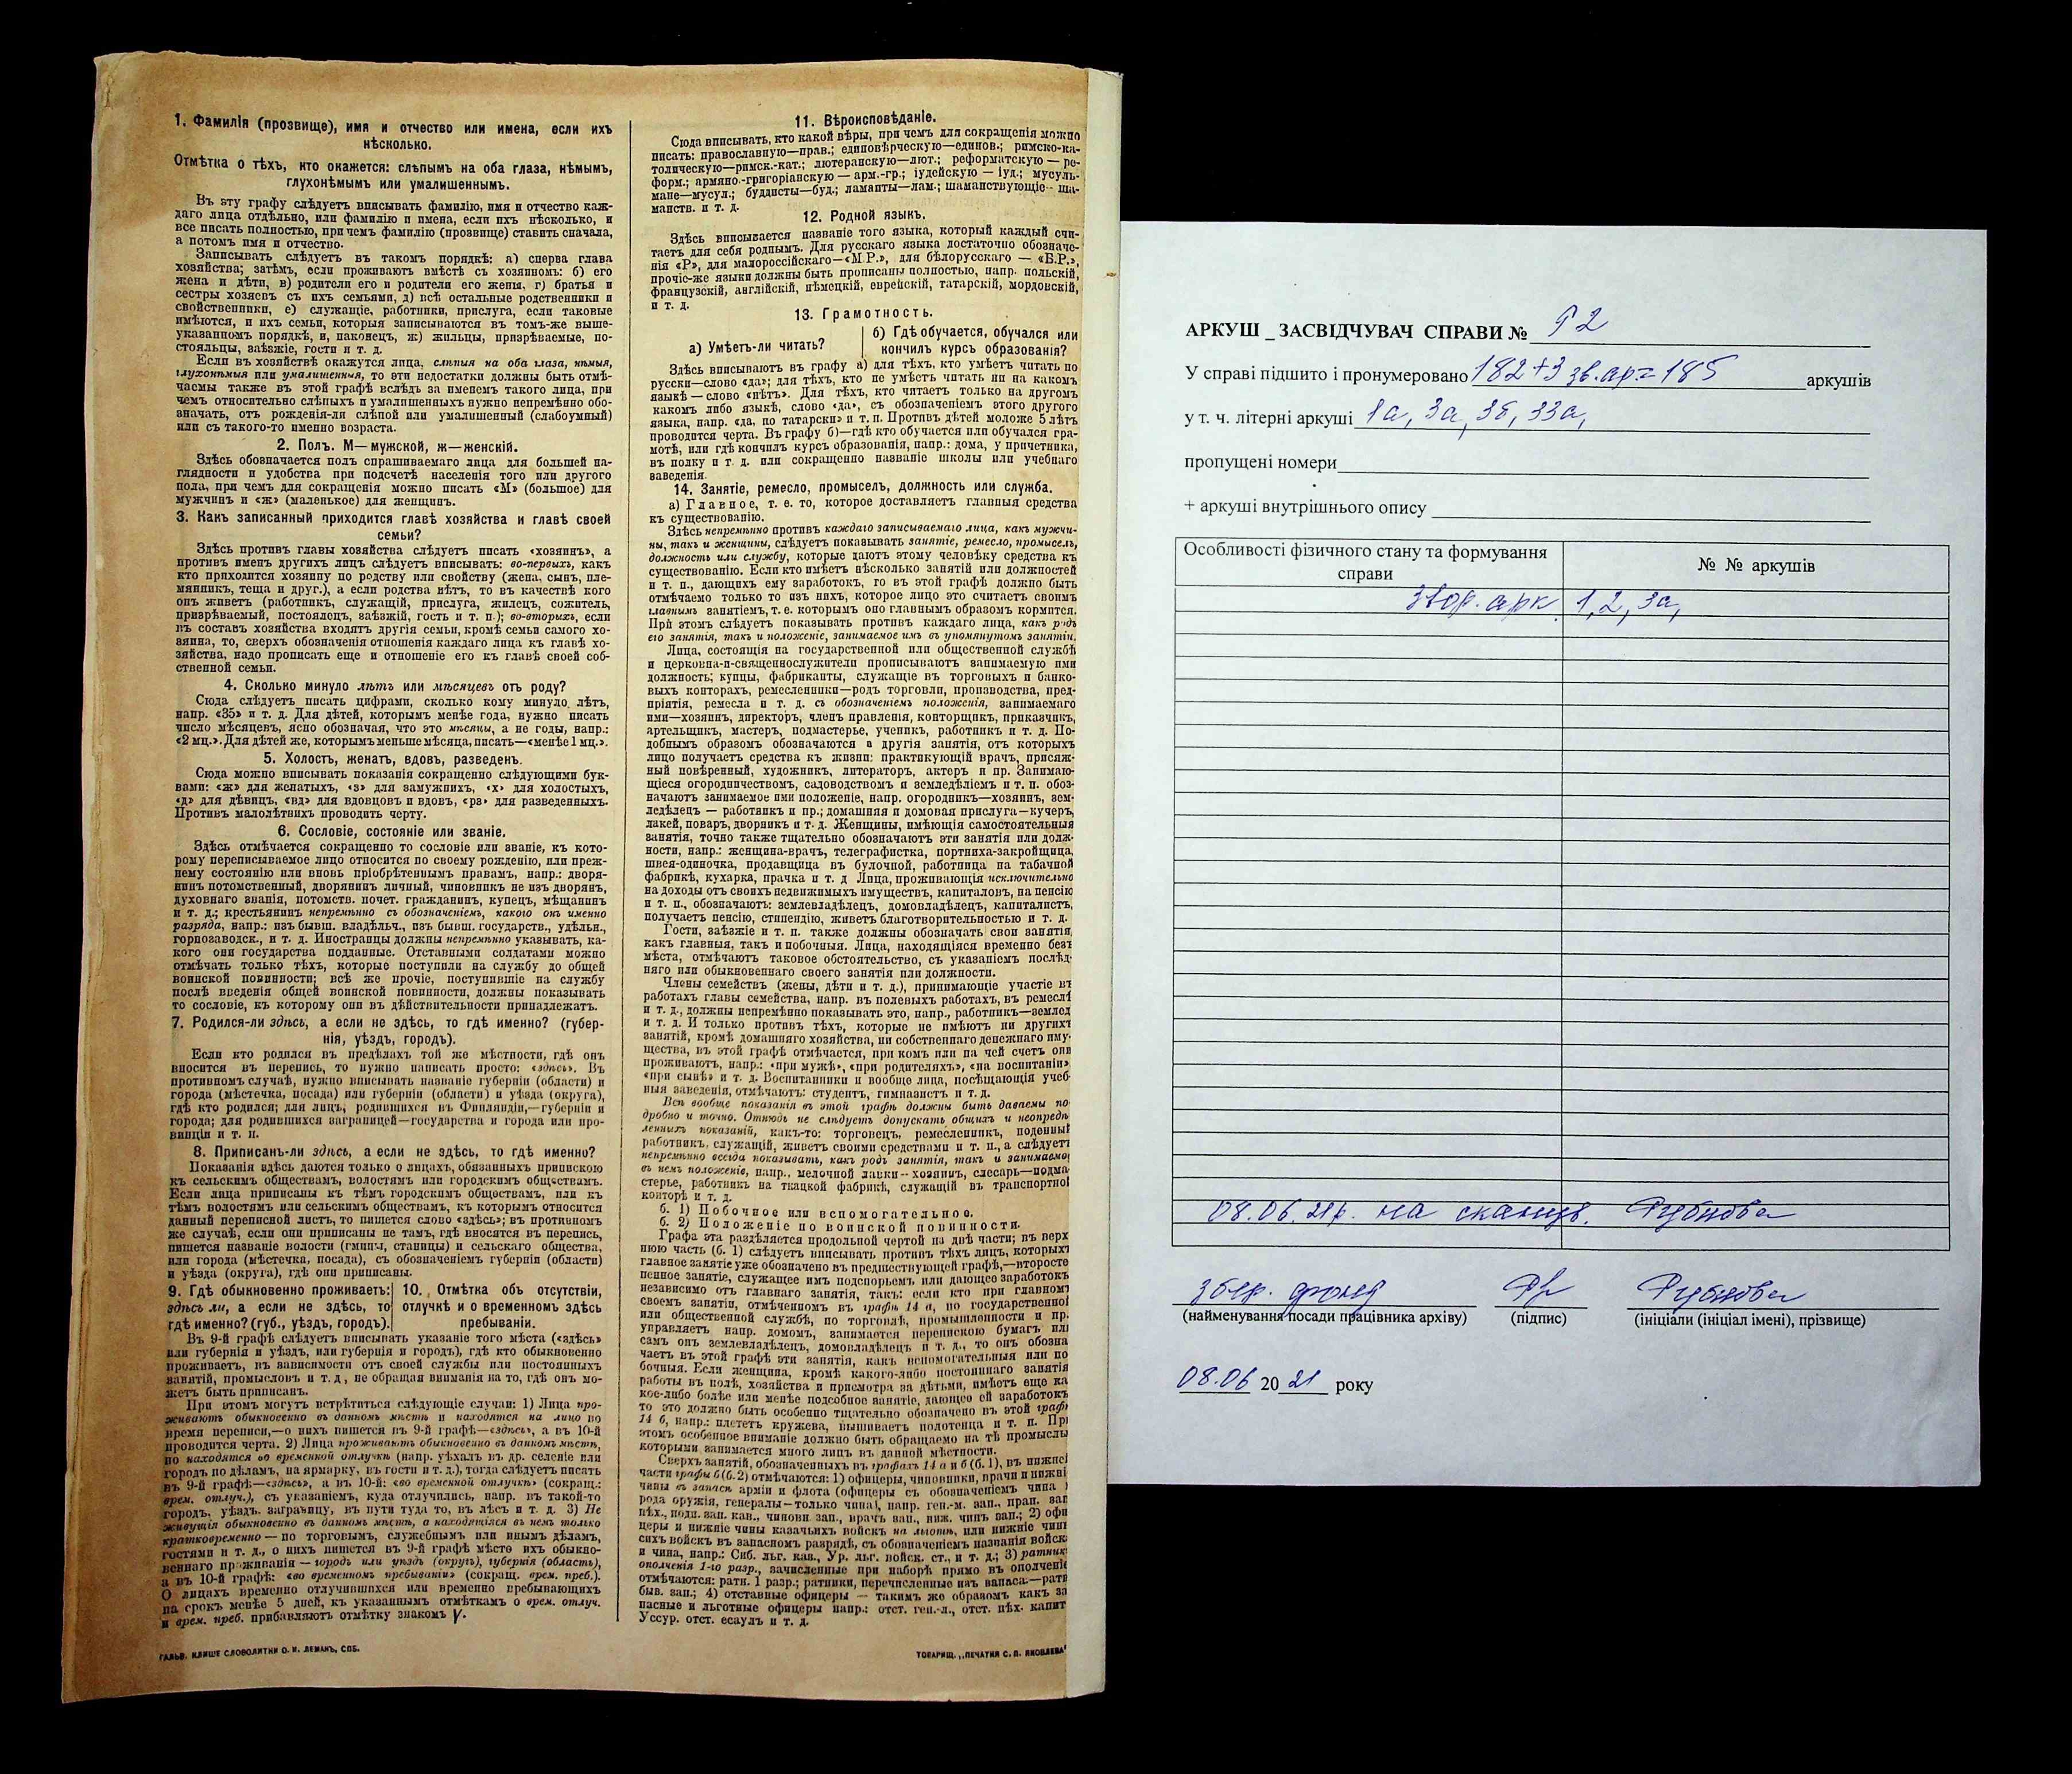 1. Фамилія (прозвище), имя и отчество или имена, если ихъ
нѣсколько.
Отмѣтка о тѣхъ, кто окажется: слѣпымъ на оба глаза, нѣмымъ,
глухонѣмымъ или умалишеннымъ.
Въ эту графу слѣдуетъ вписывать фамилію, имя и отчество каж-
даго лица отдѣльно, или фамилію и имена, если ихъ нѣсколько, и
все писать полностью, при чемъ фамилію (прозвище) ставить сначала,
а потомъ имя и отчество.
Записывать слѣдуетъ въ такомъ порядкѣ: а) сперва глава
хозяйства; затѣмъ, если проживаютъ вмѣстѣ съ хозяиномъ: б) его
жена и дѣти, в) родители его и родители его жены, г) братья и
сестры хозяевъ съ ихъ семьями, д) всѣ остальные родственники и
свойственники, е) служащіе, работники, прислуга, если таковые
имѣются, и ихъ семьи, которыя записываются въ томъ-же выше-
указанномъ порядкѣ, и, наконецъ, ж) жильцы, призрѣваемые, по-
стояльцы, заѣзжіе, гости и т. д.
Если въ хозяйствѣ окажутся лица, слѣпыя на оба глаза, нѣмыя,
глухонѣмыя или умалишенныя, то эти недостатки должны быть отмѣ-
чаемы также въ этой графѣ вслѣдъ за именемъ такого лица, при
чемъ относительно слѣпыхъ и умалишенныхъ нужно непремѣнно обо-
значать, отъ рожденія-ли слѣпой или умалишенный (слабоумный)
или съ такого-то именно возраста.
2. Полъ. М—мужской, ж—женскій.
Здѣсь обозначается полъ спрашиваемаго лица для большей на-
глядности и удобства при подсчетѣ населенія того или другого
пола, при чемъ для сокращенія можно писать «М» (большое) для
мужчинъ и «ж» (маленькое) для женщинъ.
3. Какъ записанный приходится главѣ хозяйства и главѣ своей
семьи?
Здѣсь противъ главы хозяйства слѣдуетъ писать «хозяинъ», а
противъ именъ другихъ лицъ слѣдуетъ вписывать: во-первыхъ, какъ
кто приходится хозяину по родству или свойству (жена, сынъ, пле-
мянникъ, теща и друг.), а если родства нѣтъ, то въ качествѣ кого
онъ живетъ (работникъ, служащій, прислуга, жилецъ, сожитель,
призрѣваемый, постоялецъ, заѣзжій, гость и т. п.); во-вторыхъ, если
въ составъ хозяйства входятъ другія семьи, кромѣ семьи самого хо-
зяина, то, сверхъ обозначенія отношенія каждаго лица къ главѣ хо-
зяйства, надо прописать еще и отношеніе его къ главѣ своей соб-
ственной семьи.
4. Сколько минуло лѣтъ или мѣсяцевъ отъ роду?
Сюда слѣдуетъ писать цифрами, сколько кому минуло лѣтъ,
напр. «35» и т. д. Для дѣтей, которымъ менѣе года, нужно писать
число мѣсяцевъ, ясно обозначая, что это мѣсяцы, а не годы, напр.:
«2 мц.». Для дѣтей же, которымъ меньше мѣсяца, писать—«менѣе 1 мц.».
5. Холостъ, женатъ, вдовъ, разведенъ.
Сюда можно вписывать показанія сокращенно слѣдующими бук-
вами: «ж» для женатыхъ, «з» для замужнихъ, «х» для холостыхъ,
«д» для дѣвицъ, «вд» для вдовцовъ и вдовъ, «рз» для разведенныхъ.
Противъ малолѣтнихъ проводить черту.
6. Сословіе, состояніе или званіе.
Здѣсь отмѣчается сокращенно то сословіе или званіе, къ кото-
рому переписываемое лицо относится по своему рожденію, или преж-
нему состоянію или вновь пріобрѣтеннымъ правамъ, напр.: дворя-
нинъ потомственный, дворянинъ личный, чиновникъ не изъ дворянъ,
духовнаго званія, потомств. почет. гражданинъ, купецъ, мѣщанинъ
и т. д.; крестьянинъ непремѣнно съ обозначеніемъ, какого онъ именно
разряда, напр.: изъ бывш. владѣльч., изъ бывш. государств., удѣльн.,
горнозаводск., и т. д. Иностранцы должны непремѣнно указывать, ка-
кого они государства подданные. Отставными солдатами можно
отмѣчать только тѣхъ, которые поступили на службу до общей
воинской повинности; всѣ же прочіе, поступившіе на службу
послѣ введенія общей воинской повинности, должны показывать
то сословіе, къ которому они въ дѣйствительности принадлежатъ.
7. Родился-ли здѣсь, а если не здѣсь, то гдѣ именно? (губер-
нія, уѣздъ, городъ).
Если кто родился въ предѣлахъ той же мѣстности, гдѣ онъ
вносится въ перепись, то нужно написать просто: «здѣсь». Въ
противномъ случаѣ, нужно вписывать названіе губерніи (области) и
города (мѣстечка, посада) или губерніи (области) и уѣзда (округа),
гдѣ кто родился; для лицъ, родившихся въ Финляндіи,—губерніи и
города; для родившихся заграницей—государства и города или про-
винціи и т. п.
8. Приписанъ-ли здѣсь, а если не здѣсь, то гдѣ именно?
Показанія здѣсь даются только о лицахъ, обязанныхъ припискою
къ сельскимъ обществамъ, волостямъ или городскимъ обществамъ.
Если лица приписаны къ тѣмъ городскимъ обществамъ, или къ
тѣмъ волостямъ или сельскимъ обществамъ, къ которымъ относится
данный переписной листъ, то пишется слово «здѣсь»; въ противномъ
же случаѣ, если они приписаны не тамъ, гдѣ вносятся въ перепись,
пишется названіе волости (гмины, станицы) и сельскаго общества,
или города (мѣстечка, посада), съ обозначеніемъ губерніи (области)
и уѣзда (округа), гдѣ они приписаны.
9. Гдѣ обыкновенно проживаетъ:
здѣсь ли, а если не здѣсь, то
гдѣ именно? (губ., уѣздъ, городъ).
10. Отмѣтка объ отсутствіи,
отлучкѣ и о временномъ здѣсь
пребываніи.
Въ 9-й графѣ слѣдуетъ вписывать указаніе того мѣста («здѣсь»
или губернія и уѣздъ, или губернія и городъ), гдѣ кто обыкновенно
проживаетъ, въ зависимости отъ своей службы или постоянныхъ
занятій, промысловъ и т. д., не обращая вниманія на то, гдѣ онъ мо-
жетъ быть приписанъ.
При этомъ могутъ встрѣтиться слѣдующіе случаи: 1) Лица про-
живаютъ обыкновенно въ данномъ мѣстѣ и находятся на лицо во
время переписи,—о нихъ пишется въ 9-й графѣ—«здѣсь», а въ 10-й
проводится черта. 2) Лица проживаютъ обыкновенно въ данномъ мѣстѣ,
но находятся во временной отлучкѣ (напр. уѣхалъ въ др. селеніе или
городъ по дѣламъ, на ярмарку, въ гости и т. д.), тогда слѣдуетъ писать
въ 9-й графѣ—«здѣсь», а въ 10-й: «во временной отлучкѣ» (сокращ.:
врем. отлуч.), съ указаніемъ, куда отлучились, напр. въ такой-то
городъ, уѣздъ, заграницу, въ пути туда то, въ лѣсъ и т. д. 3) Не
живущія обыкновенно въ данномъ мѣстѣ, а находящіяся въ немъ только
кратковременно — по торговымъ, служебнымъ или инымъ дѣламъ,
гостями и т. д., о нихъ пишется въ 9-й графѣ мѣсто ихъ обыкно-
веннаго проживанія — городъ или уѣздъ (округъ), губернія (область),
а въ 10-й графѣ: «во временномъ пребываніи» (сокращ. врем. преб.).
О лицахъ временно отлучившихся или временно пребывающихъ
на срокъ менѣе 5 дней, къ указаннымъ отмѣткамъ о врем. отлуч.
и врем. преб. прибавляютъ отмѣтку знакомъ V.
ГАЛЬВ. КЛИШЕ СЛОВОЛИТНИ О. И. ЛЕМАНЪ, СПБ.
11. Вѣроисповѣданіе.
Сюда вписывать, кто какой вѣры, при чемъ для сокращенія можно
писать: православную—прав.; единовѣрческую—единов.; римско-ка-
толическую—римск.-кат.; лютеранскую—лют.; реформатскую — ре-
форм.; армяно-григоріанскую — арм.-гр.; іудейскую — іуд.; мусуль-
мане—мусул.; буддисты—буд.; ламаиты—лам.; шаманствующіе—ша-
манств. и т. д.
12. Родной языкъ.
Здѣсь вписывается названіе того языка, который каждый счи-
таетъ для себя роднымъ. Для русскаго языка достаточно обозначе-
нія «Р», для малороссійскаго—«М.Р.», для бѣлорусскаго — «Б.Р.»,
прочіе-же языки должны быть прописаны полностью, напр. польскій,
французскій, англійскій, нѣмецкій, еврейскій, татарскій, мордовскій,
и т. д.
13. Грамотность.
а) Умѣетъ-ли читать?
б) Гдѣ обучается, обучался или
кончилъ курсъ образованія?
Здѣсь вписываютъ въ графу а) для тѣхъ, кто умѣетъ читать по
русски—слово «да»; для тѣхъ, кто не умѣетъ читать ни на какомъ
языкѣ — слово «нѣтъ». Для тѣхъ, кто читаетъ только на другомъ
какомъ либо языкѣ, слово «да», съ обозначеніемъ этого другого
языка, напр. «да, по татарски» и т. п. Противъ дѣтей моложе 5 лѣтъ
проводится черта. Въ графу б)—гдѣ кто обучается или обучался гра-
мотѣ, или гдѣ кончилъ курсъ образованія, напр.: дома, у причетника,
въ полку и т. д. или сокращенно названіе школы или учебнаго
заведенія.
14. Занятіе, ремесло, промыселъ, должность или служба.
а) Главное, т. е. то, которое доставляетъ главныя средства
къ существованію.
Здѣсь непремѣнно противъ каждаго записываемаго лица, какъ мужчи-
ны, такъ и женщины, слѣдуетъ показывать занятіе, ремесло, промыселъ,
должность или службу, которые даютъ этому человѣку средства къ
существованію. Если кто имѣетъ нѣсколько занятій или должностей
и т. п., дающихъ ему заработокъ, то въ этой графѣ должно быть
отмѣчаемо только то изъ нихъ, которое лицо это считаетъ своимъ
главнымъ занятіемъ, т. е. которымъ оно главнымъ образомъ кормится.
При этомъ слѣдуетъ показывать противъ каждаго лица, какъ родъ
его занятія, такъ и положеніе, занимаемое имъ въ упомянутомъ занятіи.
Лица, состоящія на государственной или общественной службѣ
и церковно-и-священнослужители прописываютъ занимаемую ими
должность; купцы, фабриканты, служащіе въ торговыхъ и банко-
выхъ конторахъ, ремесленники—родъ торговли, производства, пред-
пріятія, ремесла и т. д. съ обозначеніемъ положенія, занимаемаго
ими—хозяинъ, директоръ, членъ правленія, конторщикъ, приказчикъ,
артельщикъ, мастеръ, подмастерье, ученикъ, работникъ и т. д. По-
добнымъ образомъ обозначаются и другія занятія, отъ которыхъ
лицо получаетъ средства къ жизни: практикующій врачъ, присяж-
ный повѣренный, художникъ, литераторъ, актеръ и пр. Занимаю-
щіеся огородничествомъ, садоводствомъ и земледѣліемъ и т. п. обоз-
начаютъ занимаемое ими положеніе, напр. огородникъ—хозяинъ, зем-
ледѣлецъ — работникъ и пр.; домашняя и домовая прислуга—кучеръ,
лакей, поваръ, дворникъ и т. д. Женщины, имѣющія самостоятельныя
занятія, точно также тщательно обозначаютъ эти занятія или долж-
ности, напр.: женщина-врачъ, телеграфистка, портниха-закройщица,
швея-одиночка, продавщица въ булочной, работница на табачной
фабрикѣ, кухарка, прачка и т. д. Лица, проживающія исключительно
на доходы отъ своихъ недвижимыхъ имуществъ, капиталовъ, на пенсію
и т. п., обозначаютъ: землевладѣлецъ, домовладѣлецъ, капиталистъ,
получаетъ пенсію, стипендію, живетъ благотворительностью и т. д.
Гости, заѣзжіе и т. п. также должны обозначать свои занятія,
какъ главныя, такъ и побочныя. Лица, находящіяся временно безъ
мѣста, отмѣчаютъ таковое обстоятельство, съ указаніемъ послѣд-
няго или обыкновеннаго своего занятія или должности.
Члены семействъ (жены, дѣти и т. д.), принимающіе участіе въ
работахъ главы семейства, напр. въ полевыхъ работахъ, въ ремеслѣ
и т. д., должны непремѣнно показывать это, напр., работникъ—землед
и т. д. И только противъ тѣхъ, которые не имѣютъ ни другихъ
занятій, кромѣ домашняго хозяйства, ни собственнаго денежнаго иму-
щества, въ этой графѣ отмѣчается, при комъ или на чей счетъ они
проживаютъ, напр.: «при мужѣ», «при родителяхъ», «на воспитаніи»
«при сынѣ» и т. д. Воспитанники и вообще лица, посѣщающія учеб-
ныя заведенія, отмѣчаютъ: студентъ, гимназистъ и т. д.
Всѣ вообще показанія въ этой графѣ должны быть даваемы по
дробно и точно. Отнюдь не слѣдуетъ допускать общихъ и неопредѣ
ленныхъ показаній, какъ-то: торговецъ, ремесленникъ, поденный
работникъ, служащій, живетъ своими средствами и т. п., а слѣдуетъ
непремѣнно всегда показывать, какъ родъ занятія, такъ и занимаемо
въ немъ положеніе, напр., мелочной лавки—хозяинъ, слесарь—подма
стерье, работникъ на ткацкой фабрикѣ, служащій въ транспортной
конторѣ и т. д.
б. 1) Побочное или вспомогательное.
б. 2) Положеніе по воинской повинности.
Графа эта раздѣляется продольной чертой на двѣ части; въ верх
нюю часть (б. 1) слѣдуетъ вписывать противъ тѣхъ лицъ, которыхъ
главное занятіе уже обозначено въ предшествующей графѣ,—второсте
пенное занятіе, служащее имъ подспорьемъ или дающее заработокъ
независимо отъ главнаго занятія, такъ: если кто при главномъ
своемъ занятіи, отмѣченномъ въ графѣ 14 а, по государственной
или общественной службѣ, по торговлѣ, промышленности и пр.
управляетъ напр. домомъ, занимается перепискою бумагъ или
самъ онъ землевладѣлецъ, домовладѣлецъ и т. д., то онъ обозна
чаетъ въ этой графѣ эти занятія, какъ вспомогательныя или по
бочныя. Если женщина, кромѣ какого-либо постояннаго занятія
работы въ полѣ, хозяйства и присмотра за дѣтьми, имѣетъ еще ка
кое-либо болѣе или менѣе подсобное занятіе, дающее ей заработокъ
то это должно быть особенно тщательно обозначено въ этой графѣ
14 б, напр.: плететъ кружева, вышиваетъ полотенца и т. п. При
этомъ особенное вниманіе должно быть обращаемо на тѣ промыслы
которыми занимается много лицъ въ данной мѣстности.
Сверхъ занятій, обозначенныхъ въ графахъ 14 а и б (б. 1), въ нижней
части графы б (б. 2) отмѣчаются: 1) офицеры, чиновники, врачи и нижні
чины въ запасѣ арміи и флота (офицеры съ обозначеніемъ чина
рода оружія, генералы—только чина), напр. ген.-м. зап., прап. зап
пѣх., подп. зап. кав., чиновн. зап., врачъ зап., ниж. чинъ зап.; 2) офи
церы и нижніе чины казачьихъ войскъ на льготѣ, или нижніе чины
сихъ войскъ въ запасномъ разрядѣ, съ обозначеніемъ названія войска
и чина, напр.: Сиб. льг. кав., Ур. льг. войск. ст., и т. д.; 3) ратник
ополченія 1-го разр., зачисленные при наборѣ прямо въ ополчені
отмѣчаются: ратн. 1 разр.; ратники, перечисленные изъ запаса.—ратн
быв. зап.; 4) отставные офицеры — такимъ же образомъ какъ за
пасные и льготные офицеры напр.: отст. ген.-л., отст. пѣх. капит
Уссур. отст. есаулъ и т. д.
ТОВАРИЩ. „ПЕЧАТНЯ С. П. ЯКОВЛЕВА"
АРКУШ _ ЗАСВІДЧУВАЧ СПРАВИ №
У справі підшито і пронумеровано 182+3 зв.ар=185 аркушів
у т. ч. літерні аркуші 1а, 3а, 3б, 33а,
пропущені номери
+ аркуші внутрішнього опису
Особливості фізичного стану та формування
справи
№ № аркушів
звор. арк. 1, 2, 3а,
08.06.21р. на сканув. Рубнова
збер. фонд Рубнова
(найменування посади працівника архіву) (підпис) (ініціали (ініціал імені), прізвище)
08.06 2021 року